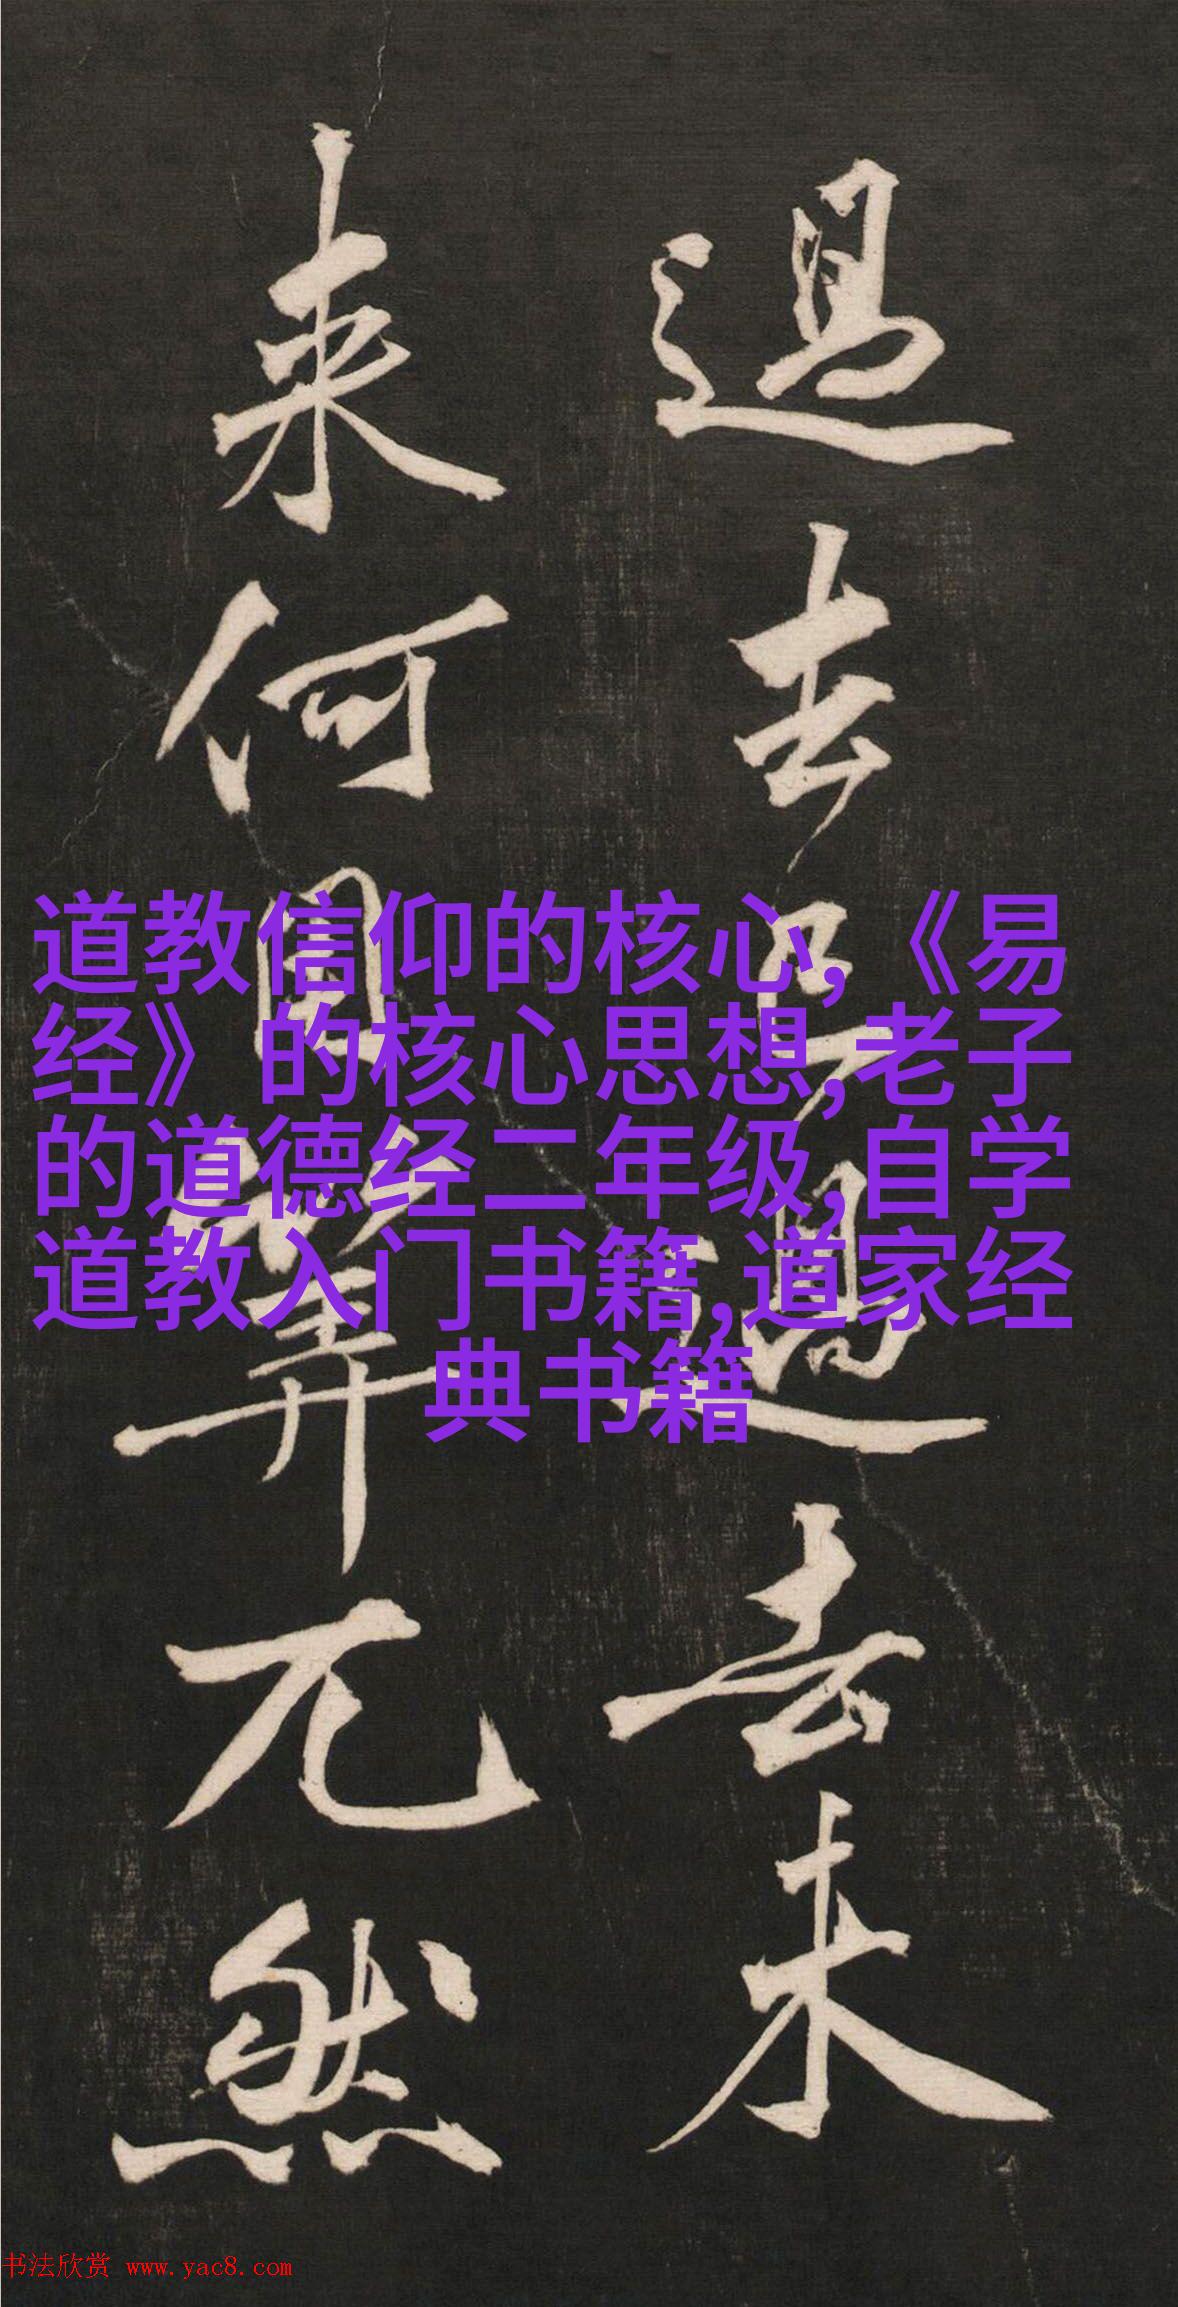 過去已過去未
来何筭兀然
道教信仰的核心,《易
经》的核心思想,老子
的道德经二年级,自学
道教入门书籍,道家经
典书籍
书法欣赏 www.yac8.com